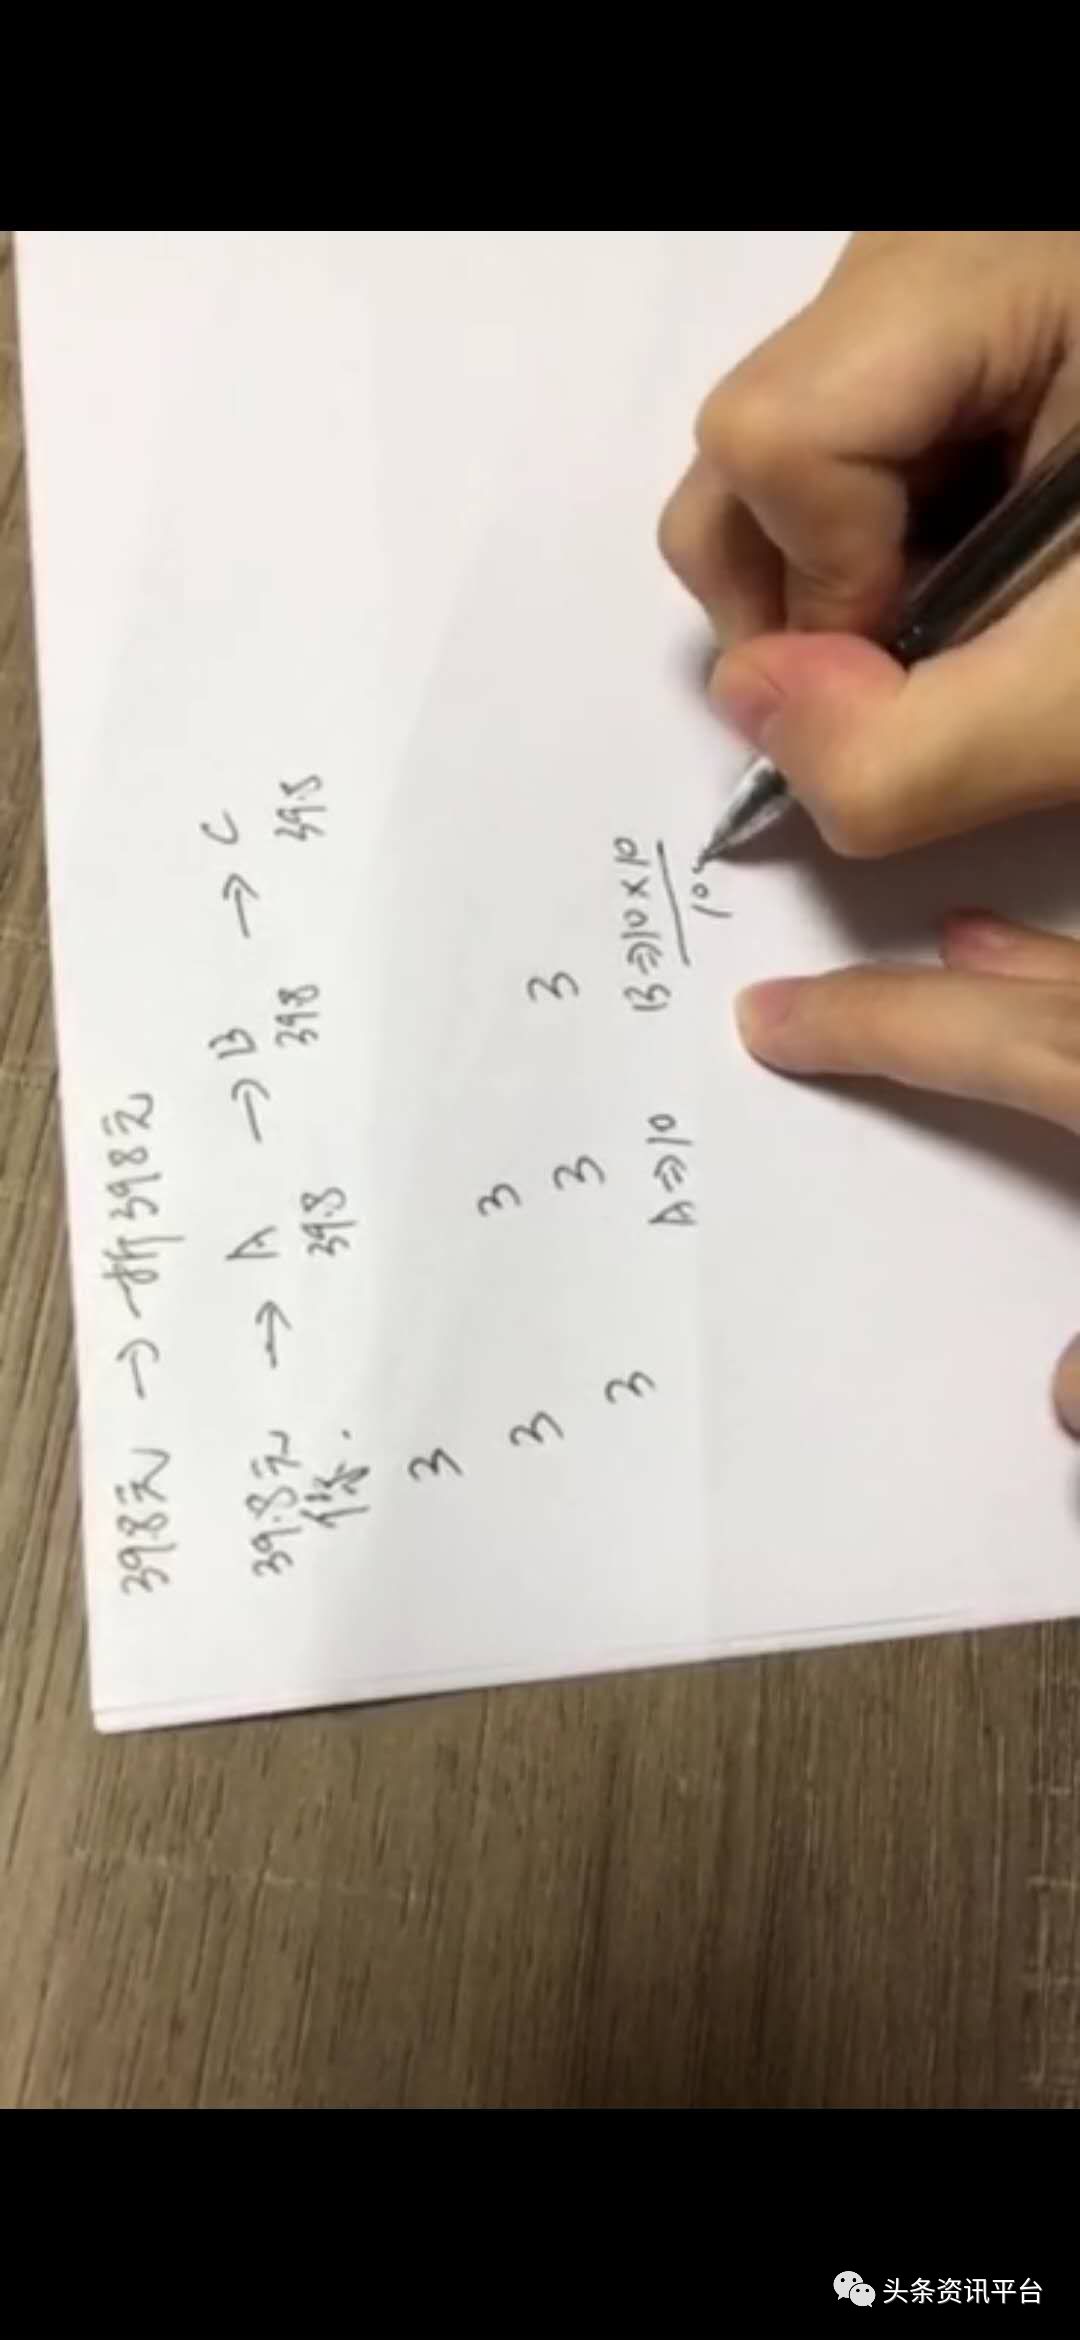 39.8元 → 折398元
39.8元 → A → B → C
39.8 398 39.8
3
3 3
3 3 3
A⇒10 B⇒10×10
10
头条资讯平台